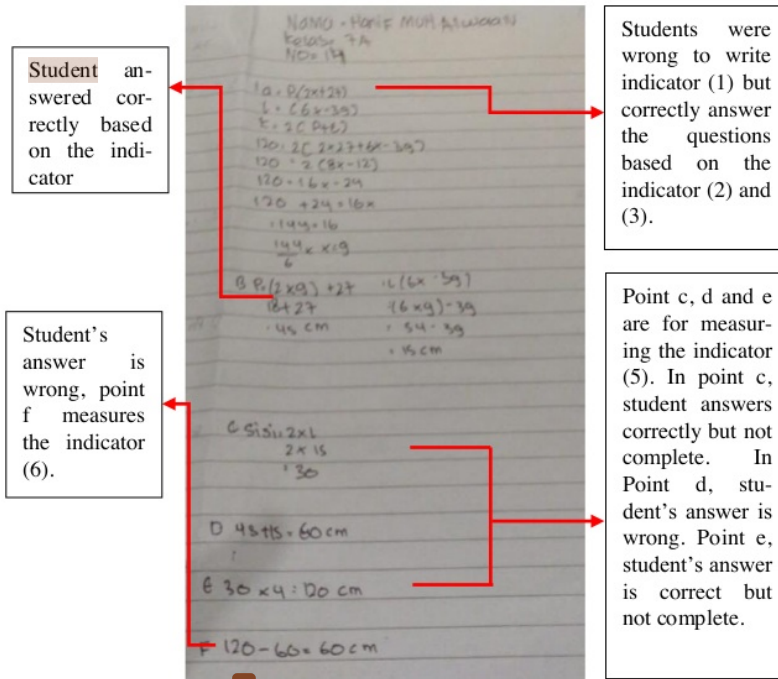 Student an-
swered cor-
rectly based
on the indi-
cator
Student's
answer is
wrong, point
f measures
the indicator
(6).
Kelas = 7A
1a = P(2x+27)
L = (6x-39)
K = 2(P+L)
120 = 2(2x+27+6x-39)
120 = 2(8x-12)
120 = 16x-24
120 +24 = 16x
144 = 16
144
6
x = 9
B P = (2x9) +27
18+27
= 45 cm
= L (6x-39)
(6x9)-39
= 54-39
= 15 cm
C Sisi = 2xL
2 x 15
= 30
D 45+15 = 60 cm
E 30 x 4 = 120 cm
F 120-60 = 60 cm
Students were
wrong to write
indicator (1) but
correctly answer
the questions
based on the
indicator (2) and
(3).
Point c, d and e
are for measur-
ing the indicator
(5). In point c,
student answers
correctly but not
complete. In
Point d, stu-
dent's answer is
wrong. Point e,
student's answer
is correct but
not complete.